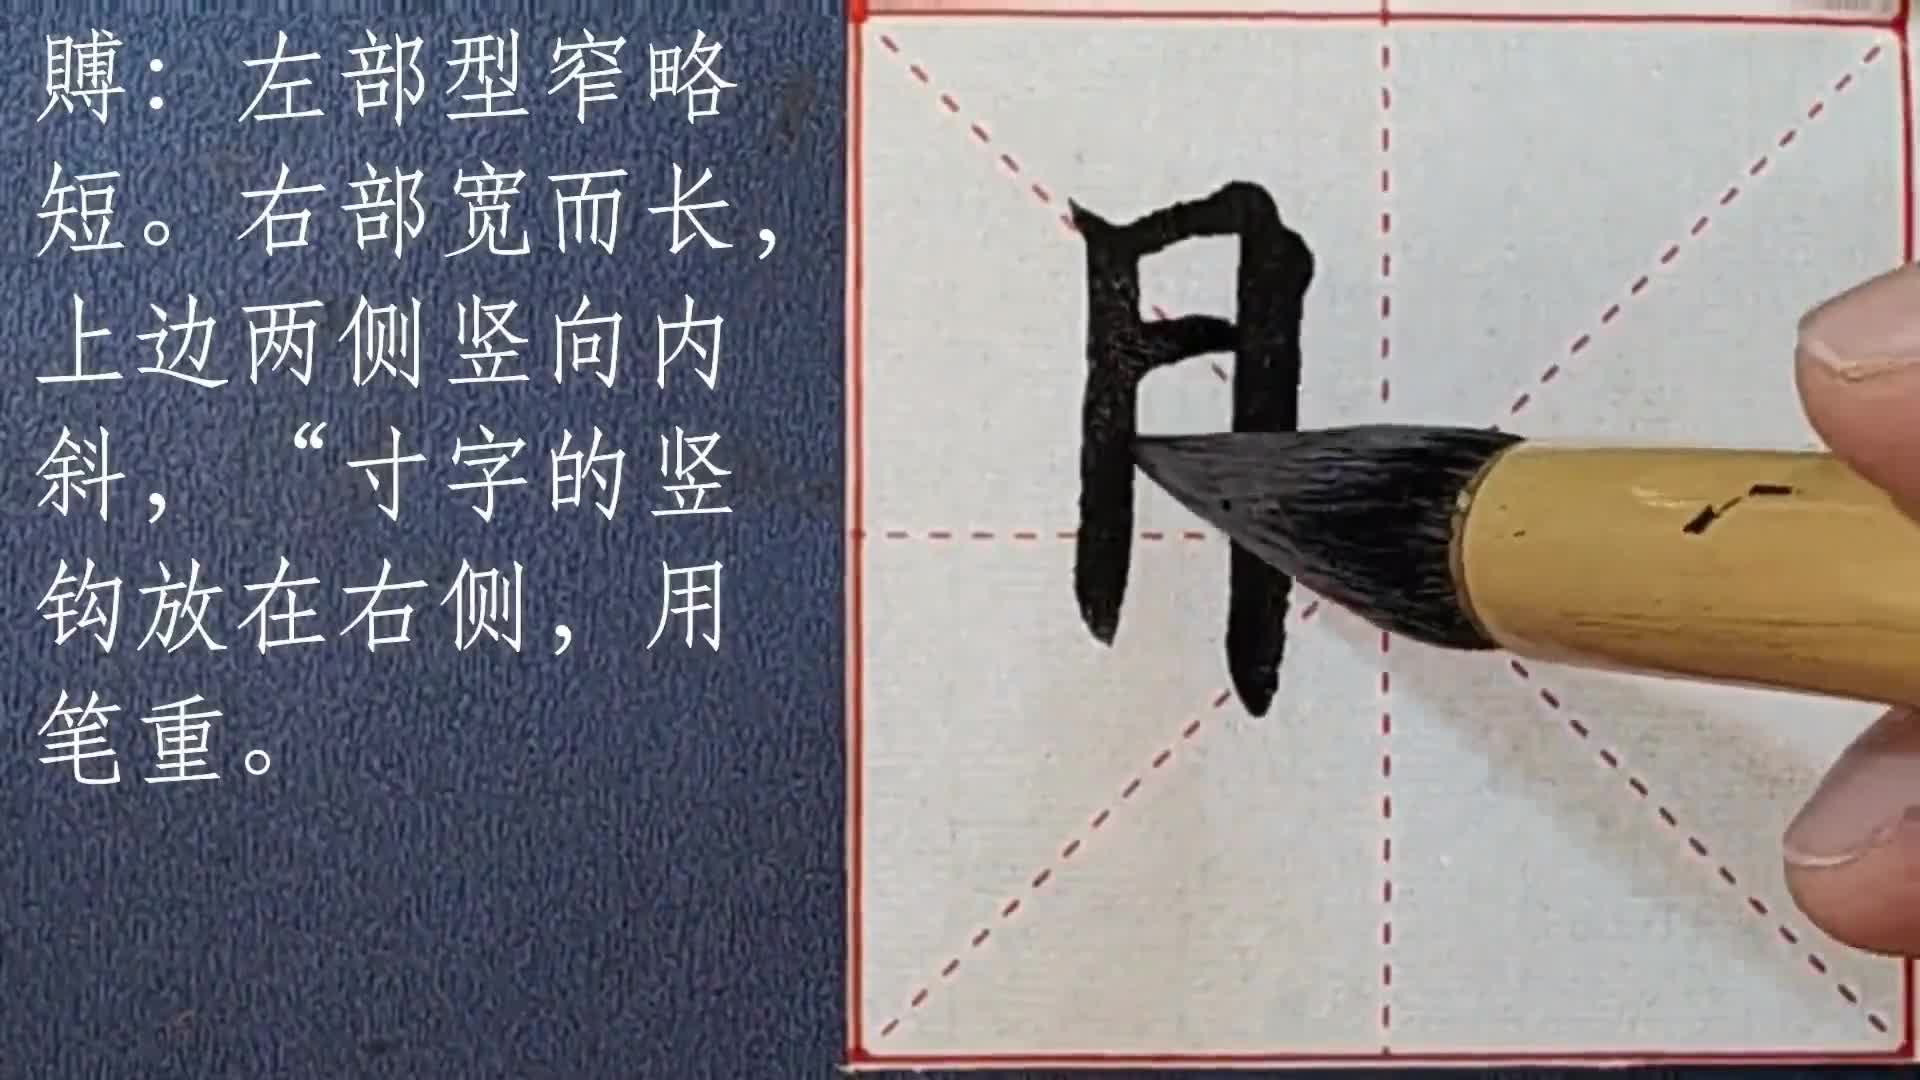 賻：左部型窄略
短。右部宽而长，
上边两侧竖向内
斜，“寸字的竖
钩放在右侧，用
笔重。